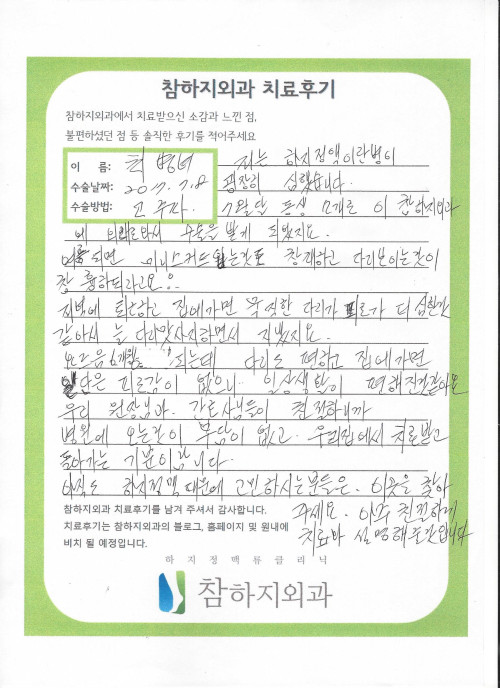 참하지외과 치료후기
참하지외과에서 치료받으신 소감과 느낀 점,
불편하셨던 점 등 솔직한 후기를 적어주세요
이 름: 최병녀
수술날짜: 2017. 7.
수술방법: 고주파.
저는 하지정맥이란병이
굉장히 심했습니다.
7월달 동생 소개로 이 참하지외과
에 수술을 받게 되었지요.
여름되면 미니스커트 창피하고 다리보이는것이
참 흉하더라고요.
저녁에 퇴근하고 집에가면 묵직한 다리가 피로가 더 심한것
같아서 늘 다리맛사지하면서 지냈지요.
요즈음 6개월 되는데 다리도 편하고 집에가면
일단은 피로감이 없으니 일상생활이 편해진것같아요
우리 원장님과 간호사님들이 친절하니까
병원에 오는것이 부담이 없고 우리집에서 치료받고
돌아가는 기분이랍니다.
아직도 하지정맥 때문에 고민하시는분들은 이곳을 찾아
주세요. 아주 친절하게
치료와 설명해
참하지외과 치료후기를 남겨 주셔서 감사합니다.
치료후기는 참하지외과의 블로그, 홈페이지 및 원내에
비치 될 예정입니다.
하지정맥류클리닉
참하지외과